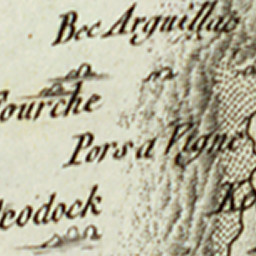 Bec Arguillac
Fourche
Pors a Vigne
eodock